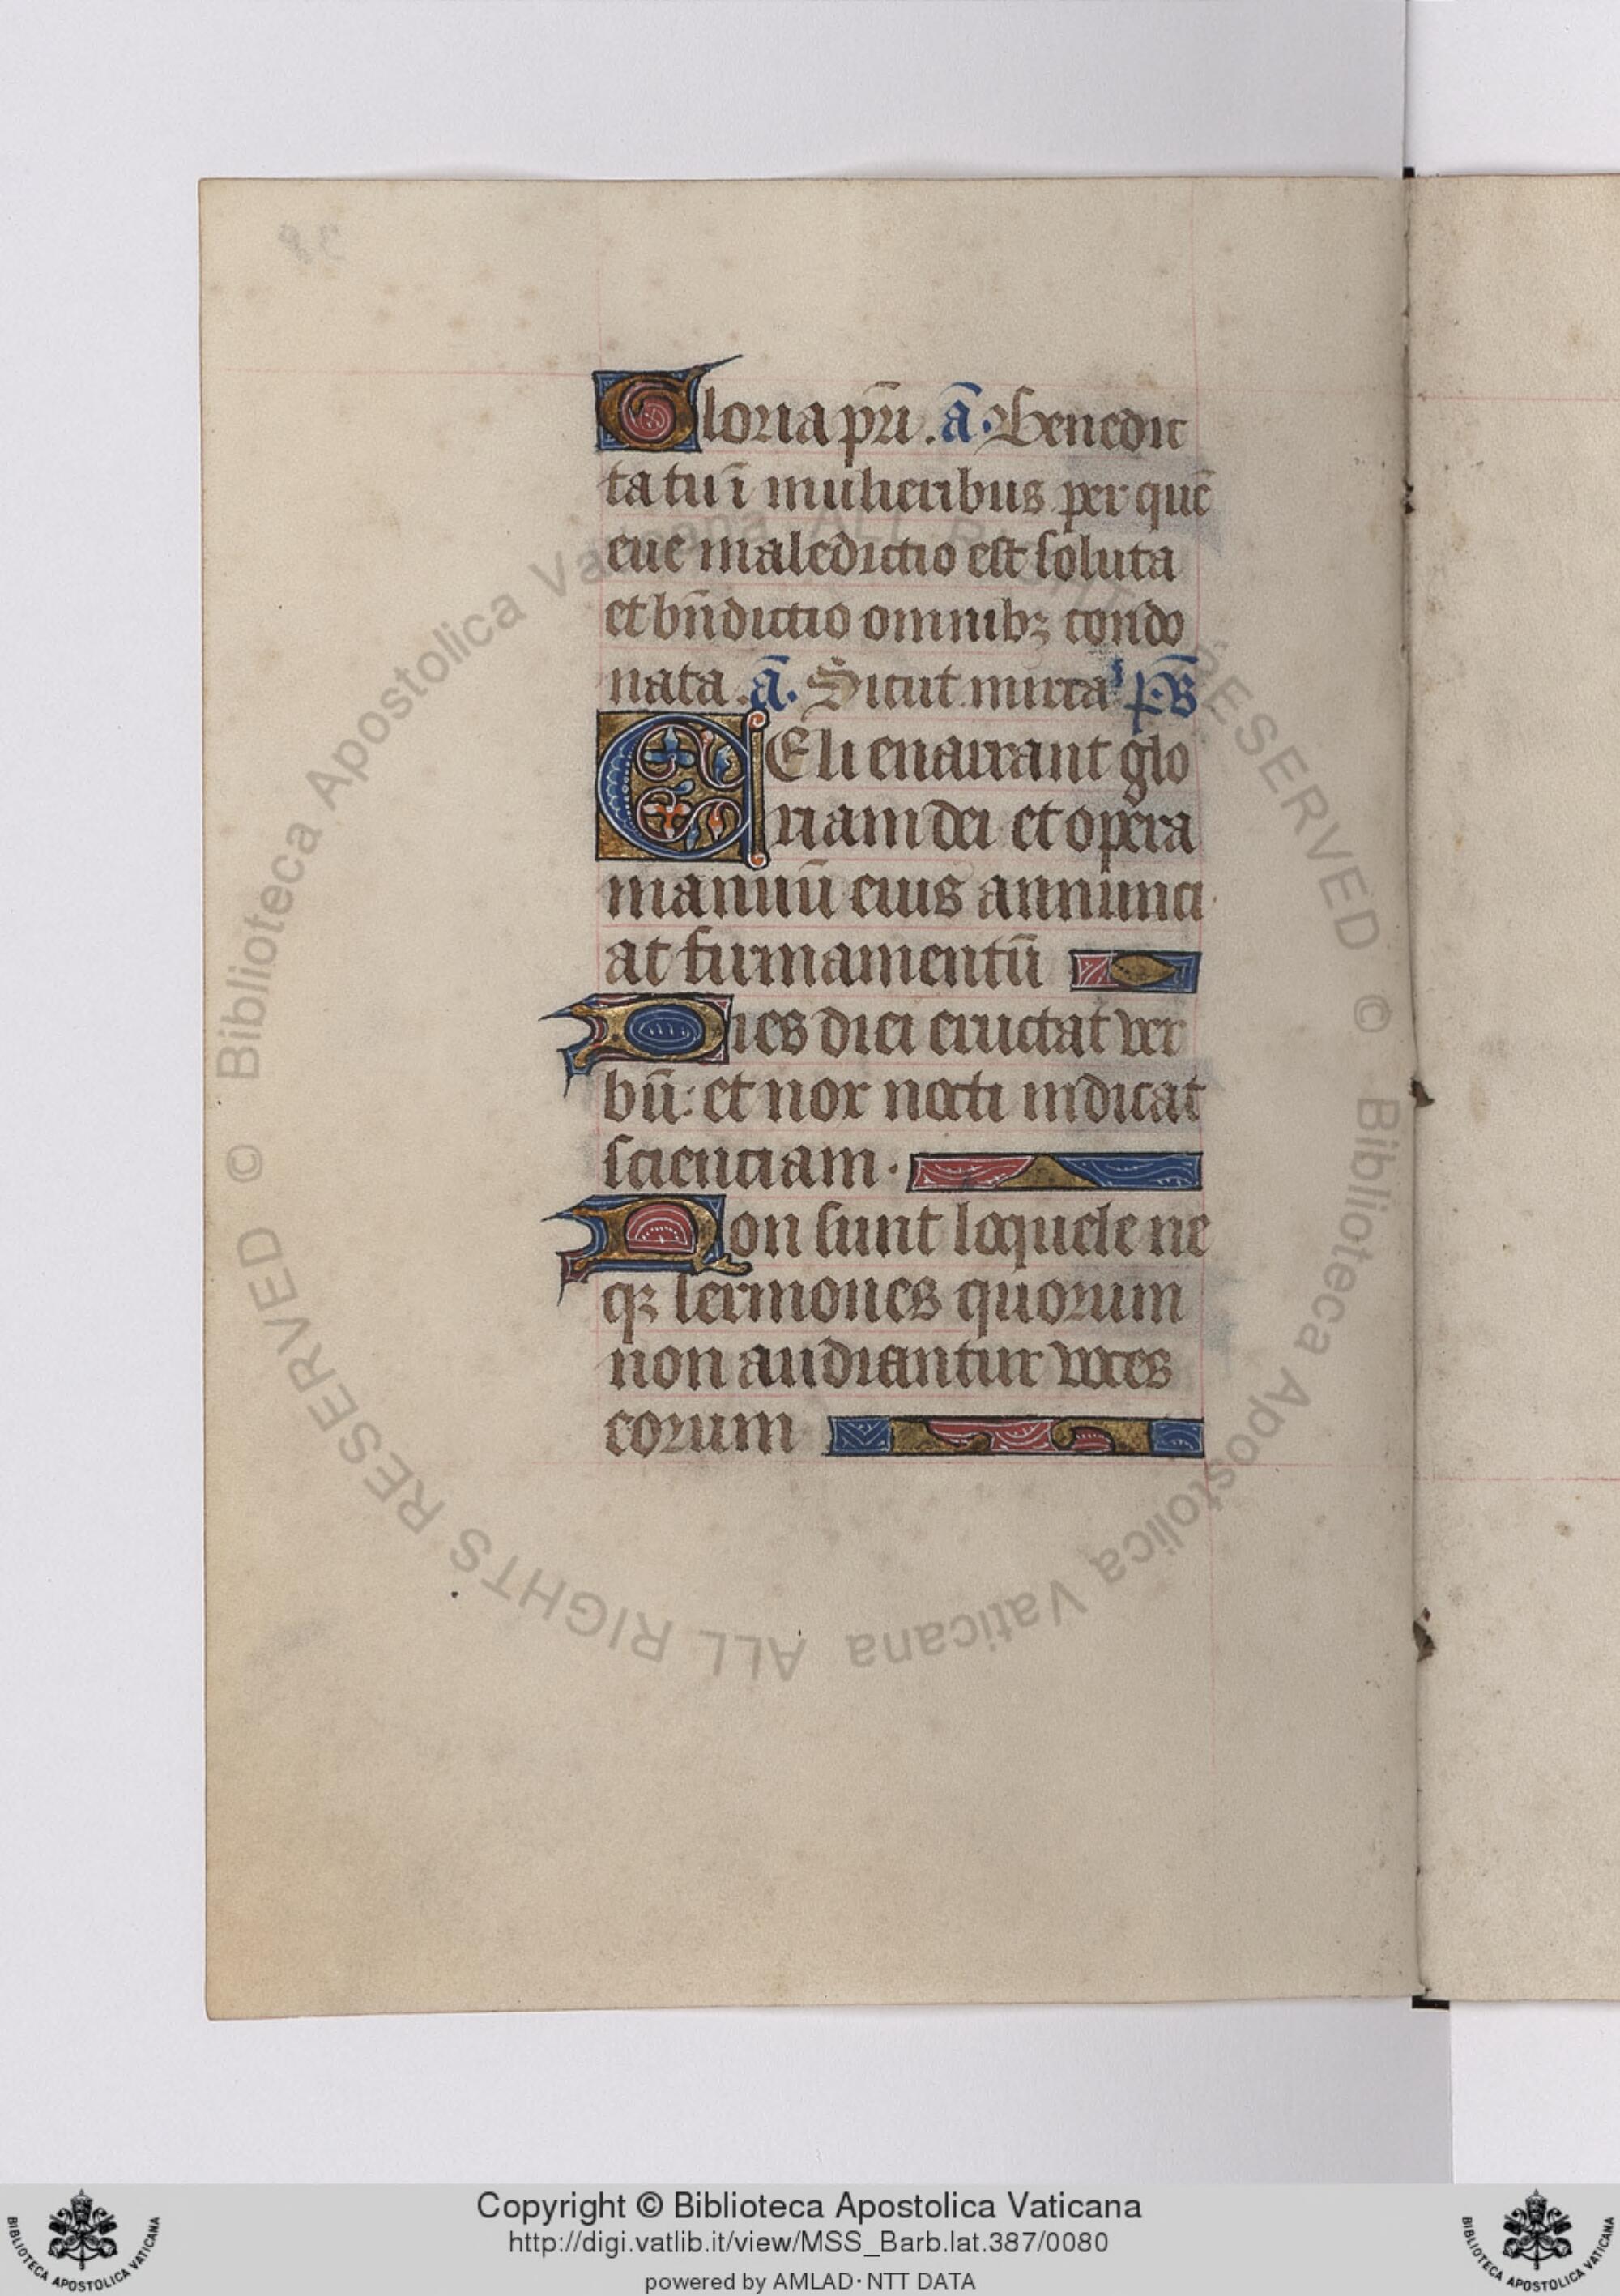 Gloria pr̄i . ā. Benedic
ta tu ī mulieribus per quē
eue maledictio est soluta
et bn̄dictio omnibꝫ condo
nata . ā. Sicut mirra p̄s
CEli enarrant glo
riam dei et opera
manuū eius annunci
at firmamentū
Dies diei eructat ver
bū: et nox nocti indicat
scienciam.
Non sunt loquele ne
qꝫ sermones quorum
non audiantur voces
eorum
© Biblioteca Apostolica Vaticana ALL RIGHTS RESERVED © Biblioteca Apostolica Vaticana ALL RIGHTS RESERVED
BIBLIOTECA APOSTOLICA VATICANA
Copyright © Biblioteca Apostolica Vaticana
http://digi.vatlib.it/view/MSS_Barb.lat.387/0080
powered by AMLAD·NTT DATA
BIBLIOTECA APOSTOLICA VATICANA